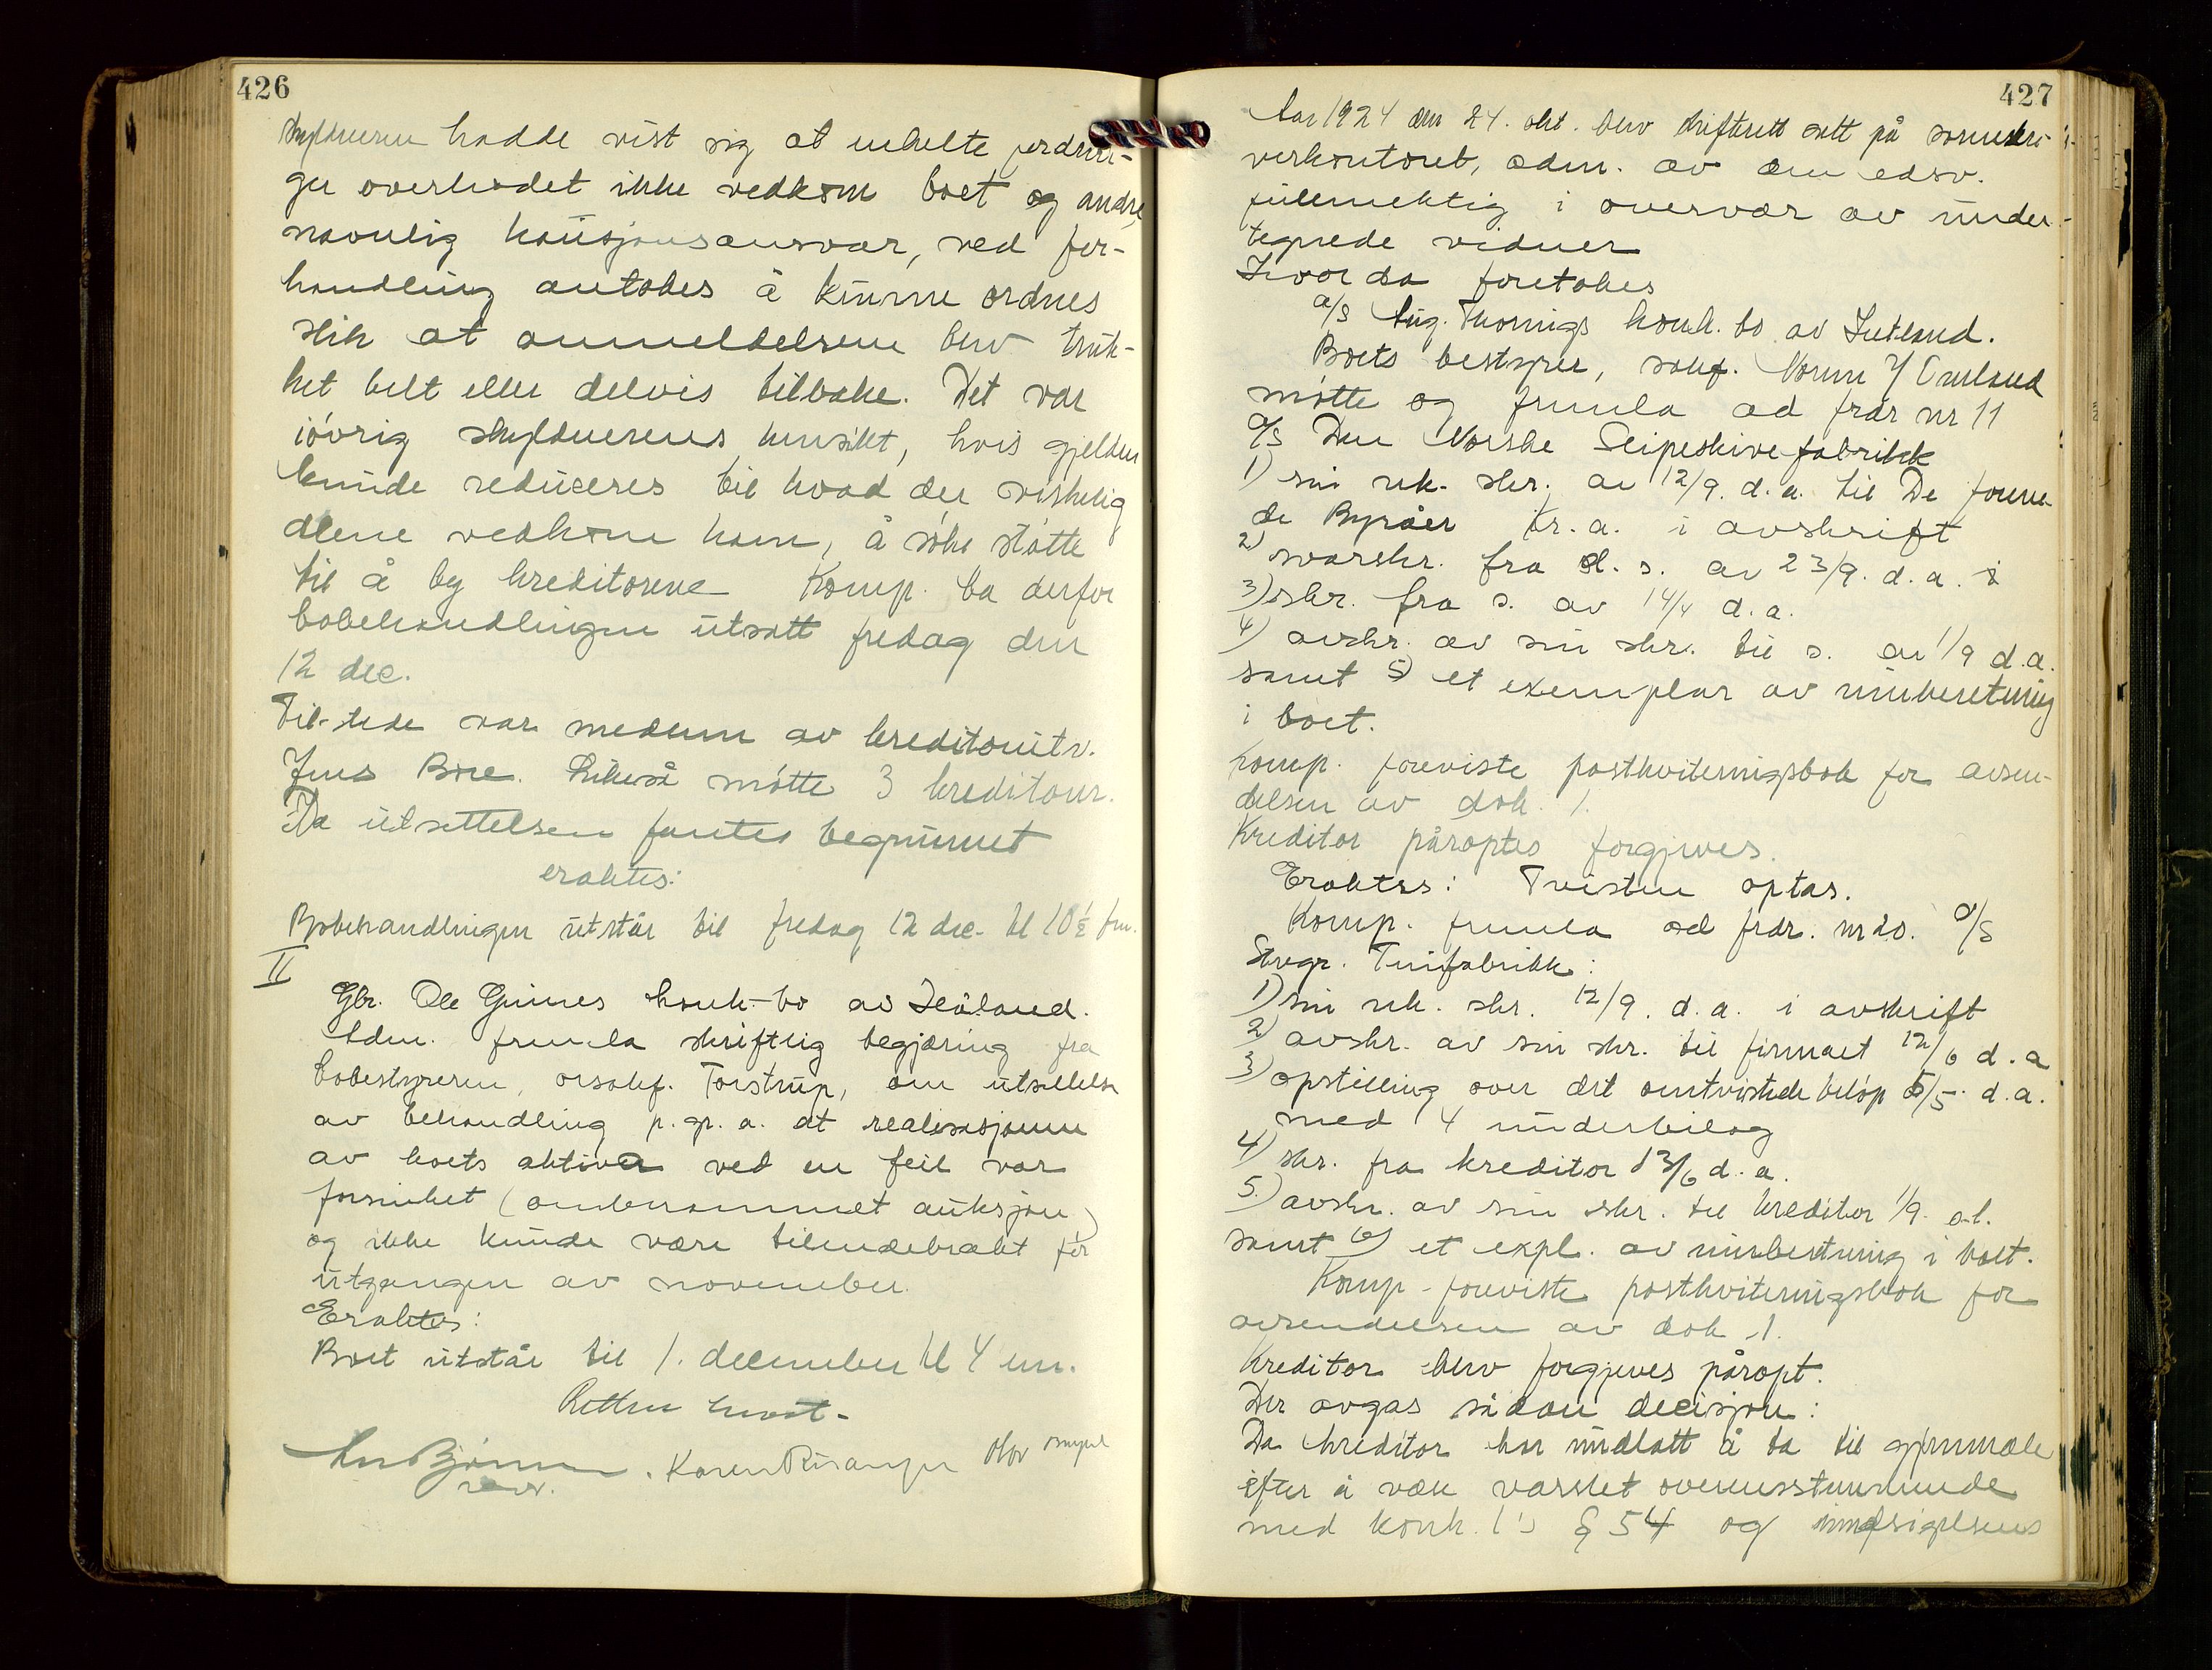 426
skyldneren hadde vist sig at enkelte fordrin-
ger overhodet ikke vedkom boet og andre,
navnlig kausjonsansvar, ved for-
handling antokes å kunne ordnes
slik at anmeldelsene blev truk-
ket helt eller delvis tilbake. Det var
iøvrig skyldnerens hensikt, hvis gjelden
kunde reduceres til hvad der virkelig
alene vedkom ham, å søke støtte
til å by kreditorene Komp. ba derfor
bobehandlingen utsatt fredag den
12 dec.
Til stede var medlem av kreditorutv.
Jens Boe. Likeså møtte 3 kreditorer.
Da utsettelsen fantes begrunnet
eraktes:
Bobehandlingen utstår til fredag 12 dec. kl 10½ fm.
II
Gbr. Ole Grimes konk.-bo av Hetland.
Adm. fremla skriftlig begjæring fra
bobestyreren, orsakf. Torstrup, om utsettelse
av behandling p. gr. a. at realisasjonen
av boets aktiva ved en feil var
forsinket (omberammet auksjon)
og ikke kunde være tilendebrakt før
utgangen av november.
Eraktes:
Boet utstår til 1. december kl 4 em.
Retten hevet.
Bjønnes
Karen Risanger Olov

427
Aar 1924 den 24. okt. blev skifterett satt på sorenskri-
verkontoret, adm. av den edsv.
fullmektig i overvær av under-
tegnede vidner
Hvor da foretokes
a/s Aug. Thornigs konk. bo av Hetland.
Boets bestyrer, sakf. Norem y Omland
møtte og fremla ad frdr nr 11
a/s Den Norske Slipeskivefabrikk
1) sin rek. skr. av 12/9. d.a. til De forene-
de Byråer Kr. a. i avskrift
2) svarskr. fra d. s. av 23/9. d.a.
3) skr. fra s. av 14/4 d.a.
4) avskr. av sin skr. til s. av 1/9 d.a.
samt 5) et exemplar av innberetning
i boet.
Komp. foreviste postkvitteringsbok for avsen-
delsen av dok. 1.
Kreditor påroptes forgjeves.
Eraktes: Tvisten optas.
Komp. fremla ad frdr. nr 20. a/s
Stvgr. Tinfabrikk:
1) sin rek. skr. 12/9. d.a. i avskrift
2) avskr. av sin skr. til firmaet 12/6 d.a
3) opstilling over det omtvistede beløp 5/5. d.a.
med 4 underbilag
4) skr. fra kreditor 13/6 d.a.
5.) avskr. av sin skr. til kreditor 1/9. d.
samt 6) et expl. av innberetning i boet.
Komp. foreviste postkvitteringsbok for
avsendelsen av dok 1.
Kreditor blev forgjeves påropt.
Der avgas sådan decisjon:
Da kreditor har undlatt å ta til gjenmæle
efter å være varslet overensstemmende
med konk. l's § 54 og innsigelsens